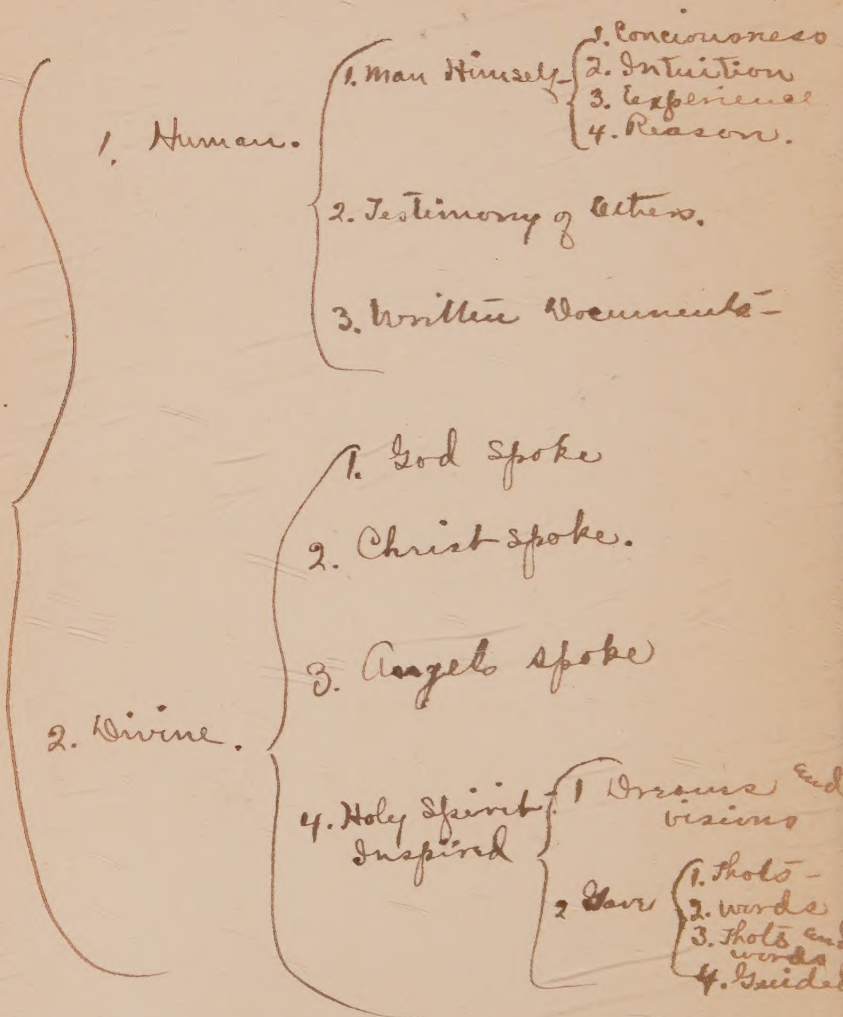 1. Human.
1. Man Himself-
1. Conciousness
2. Intuition
3. Experience
4. Reason.
2. Testimony of Others.
3. Written Documents-
2. Divine.
1. God spoke
2. Christ spoke.
3. Angels spoke
4. Holy Spirit-
Inspired
1 Dreams and
visions
2 Gave
1. Thots-
2. words
3. Thots and
words
4. Guided